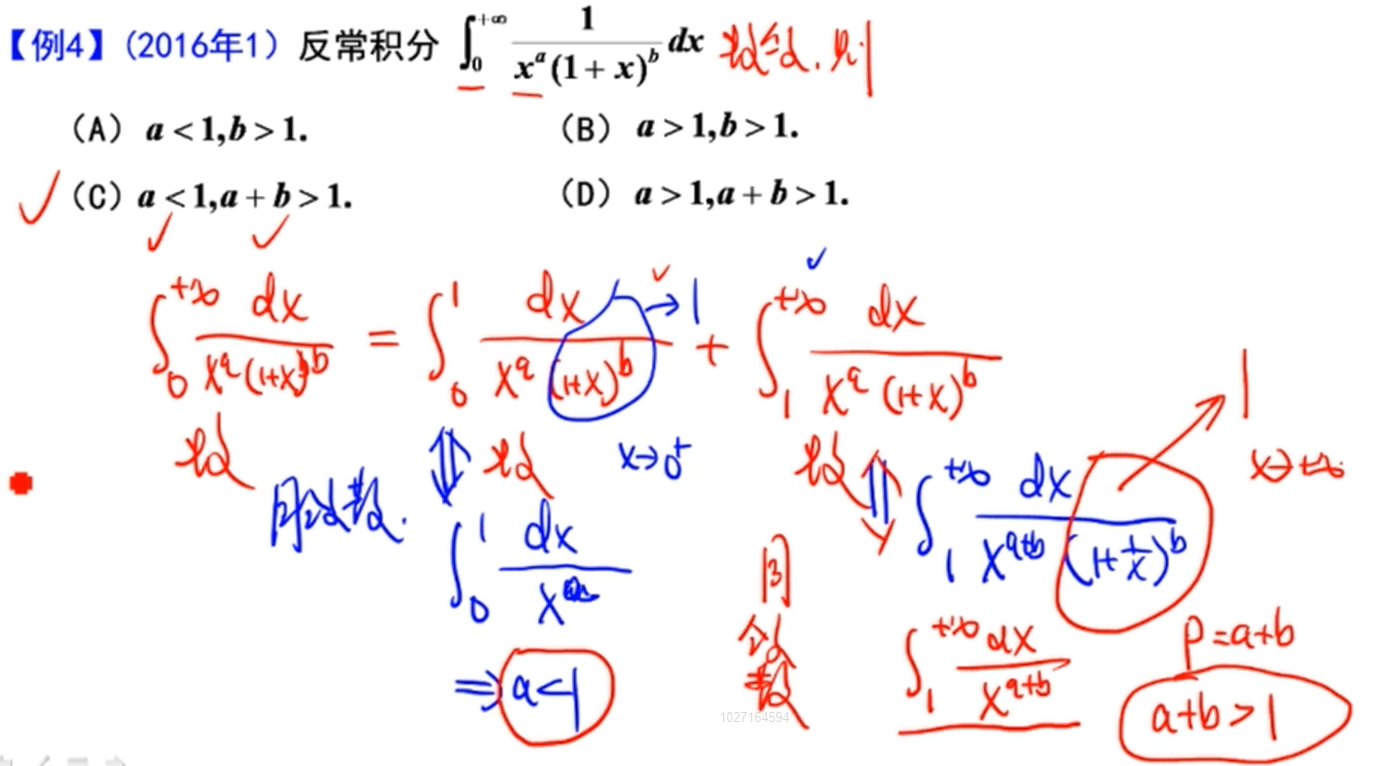 【例4】(2016年1) 反常积分 ∫₀^{+∞} 1/(x^a(1+x)^b) dx 收敛,则
(A) a<1,b>1. (B) a>1,b>1.
✓(C) a<1,a+b>1. (D) a>1,a+b>1.
∫₀^{+∞} dx/(x^a(1+x)^b) = ∫₀^1 dx/(x^a(1+x)^b) → 1 + ∫₁^{+∞} dx/(x^a(1+x)^b)
收敛 同敛散. ⇕ 收敛 x→0⁺ 收敛 ⇕ ∫₁^{+∞} dx/(x^{a+b}(1+1/x)^b) → 1 x→+∞
∫₀^1 dx/x^a
同敛散 ∫₁^{+∞} dx/x^{a+b} P=a+b
⇒ a<1 a+b>1
1027164594